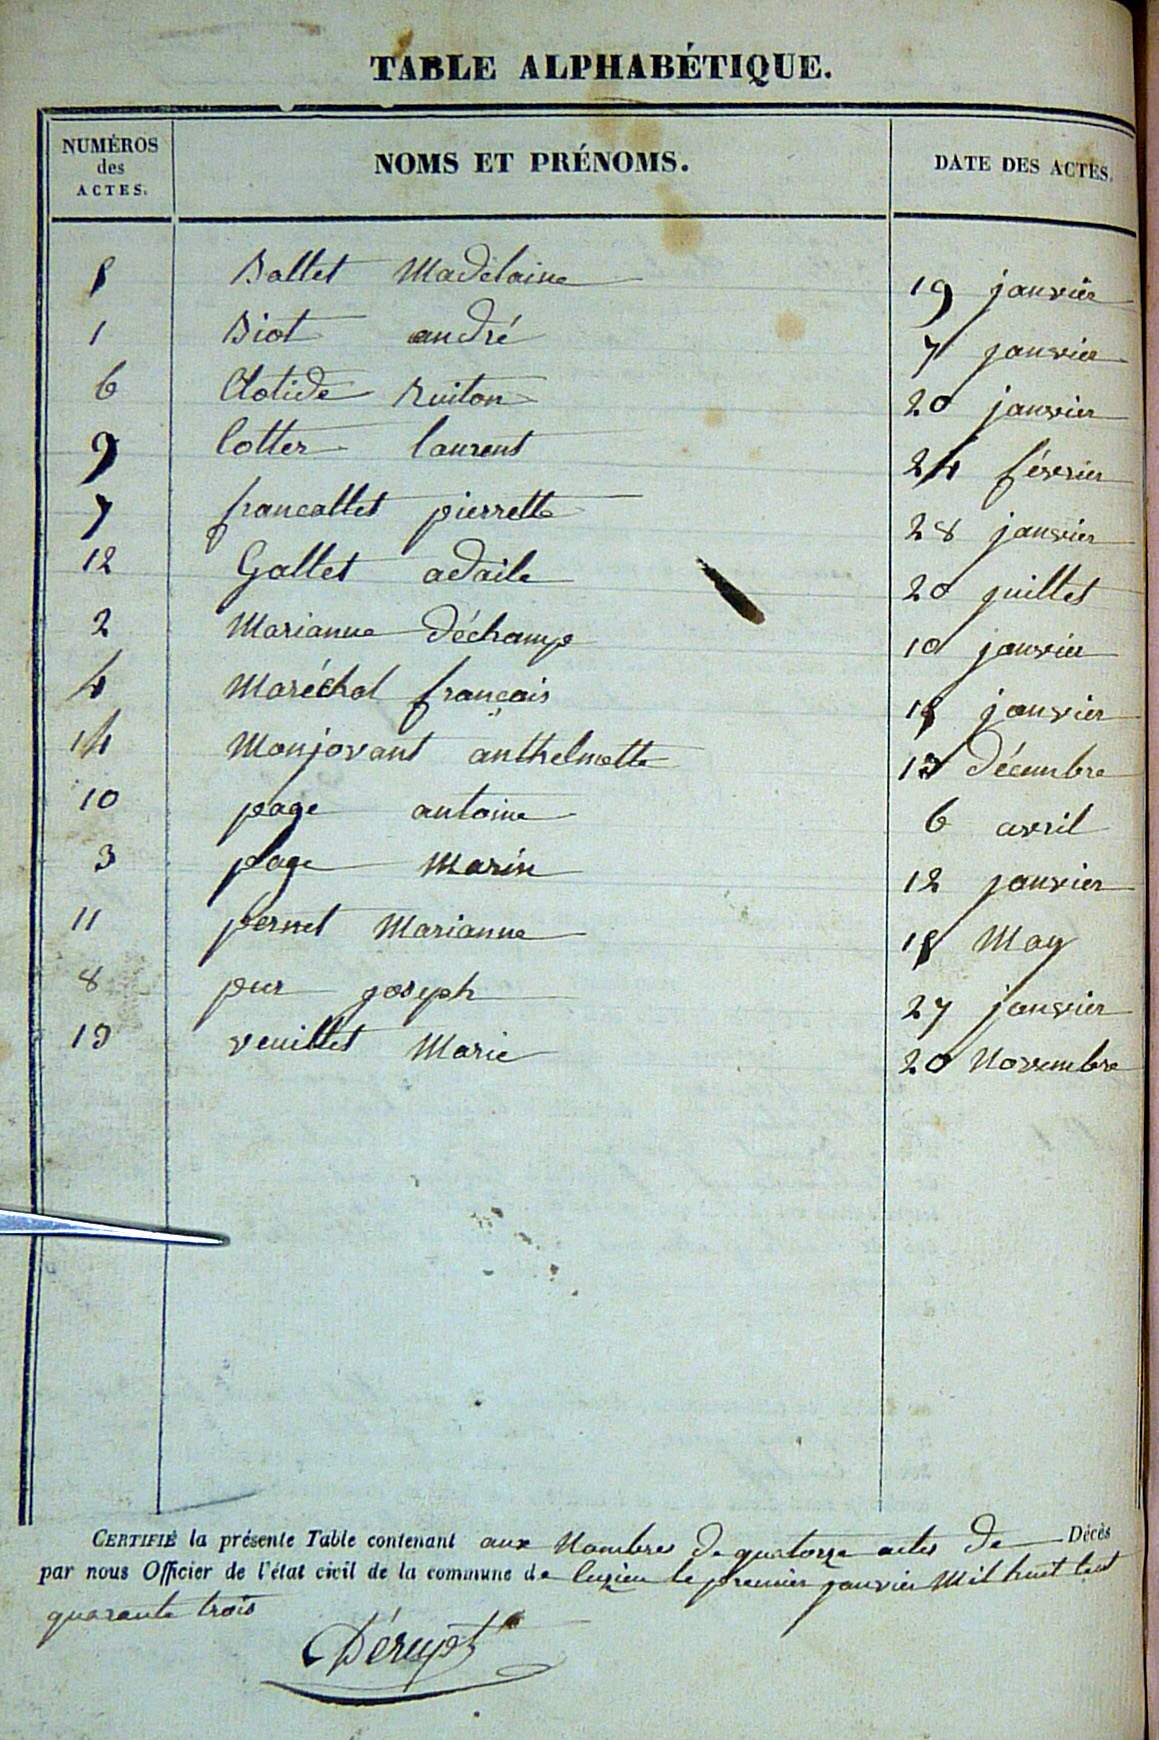 TABLE ALPHABÉTIQUE.
NUMÉROS des ACTES. NOMS ET PRÉNOMS. DATE DES ACTES.
5 Ballet Madelaine 19 janvier
1 Biot andré 7 janvier
6 Clotide Ruiton 20 janvier
9 Cotter laurent 24 février
7 francallet pierrette 28 janvier
12 Gallet adaile 20 juillet
2 Marianne déchamp 10 janvier
4 Maréchal françois 15 janvier
14 Monjovant anthelmette 13 décembre
10 page antoine 6 avril
3 page Marin 12 janvier
11 pernet Marianne 15 May
8 pur joseph 27 janvier
13 veuillet Marie 20 Novembre
CERTIFIÉ la présente Table contenant aux Nombres de quatorze actes de Décès
par nous Officier de l'état civil de la commune de le premier janvier Mil huit cent
quarante trois